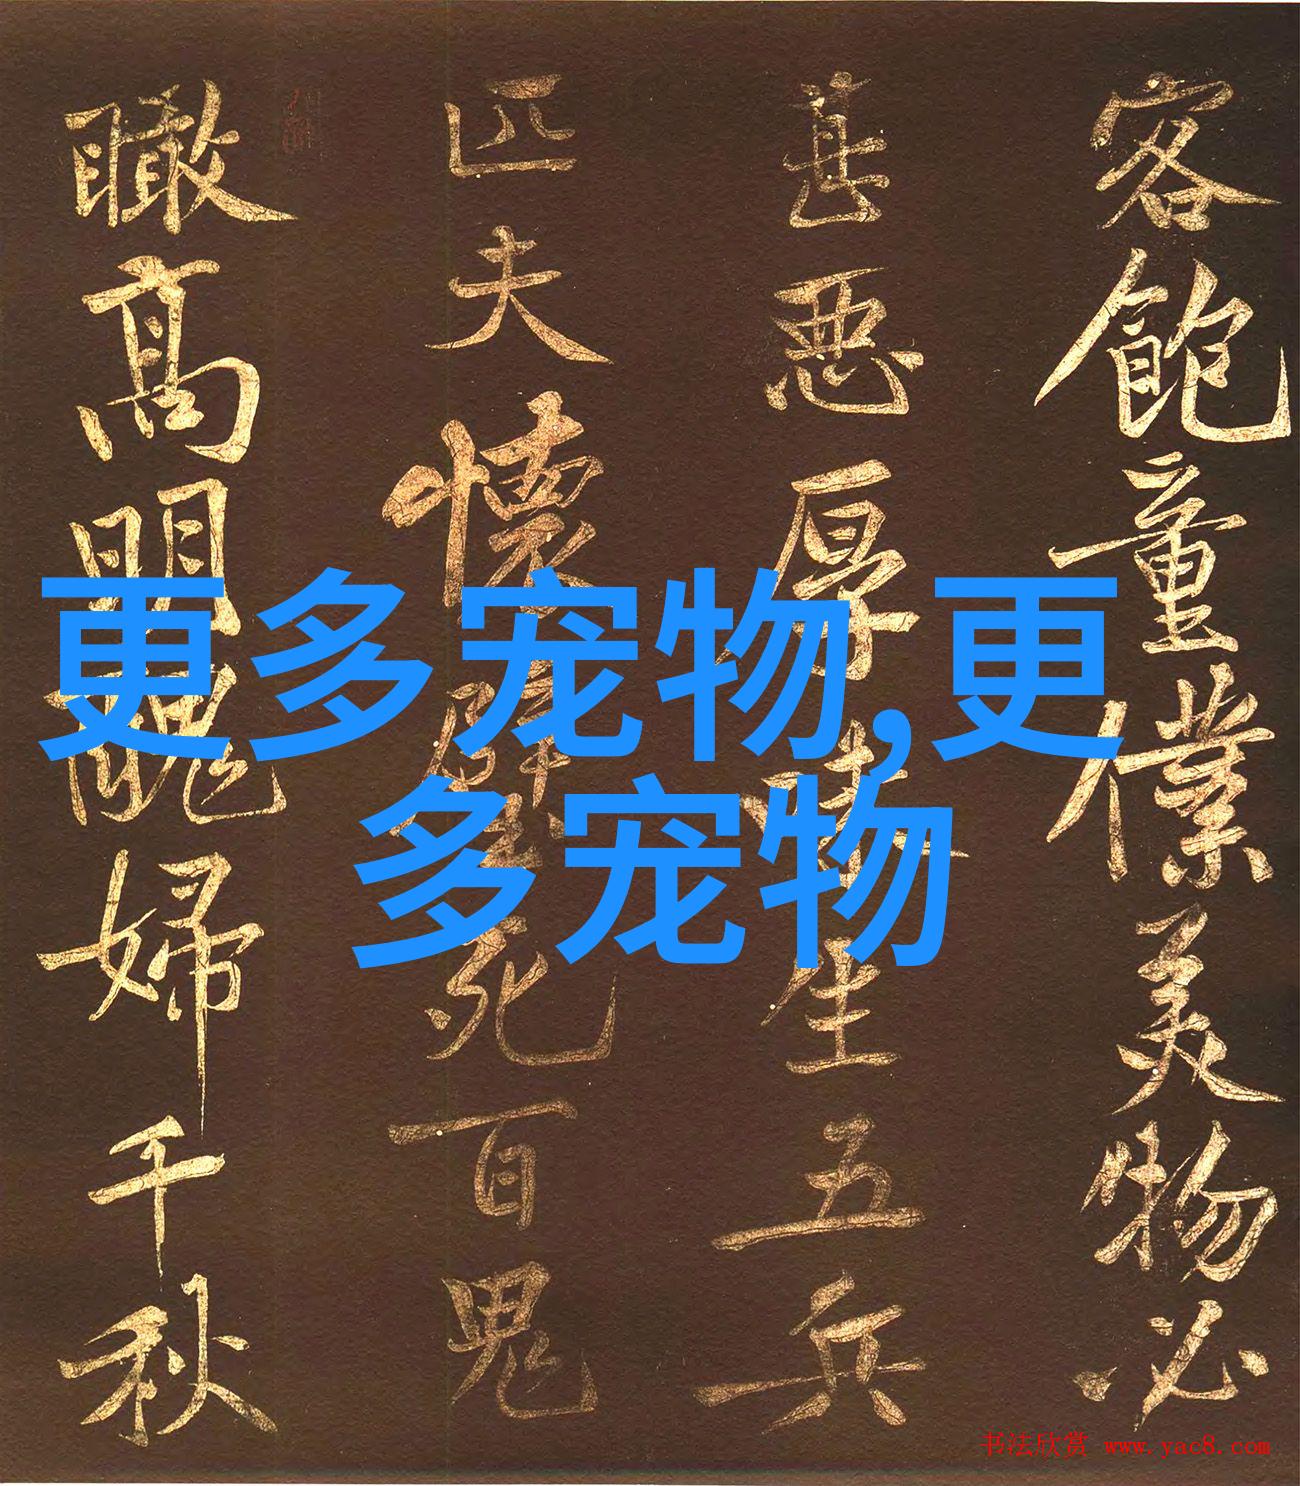 客飽童僕美物必
甚惡厚味生五兵
匹夫懷璧死百鬼
瞰高明醜婦千秋
更多宠物,更
多宠物
书法欣赏 www.yac8.com